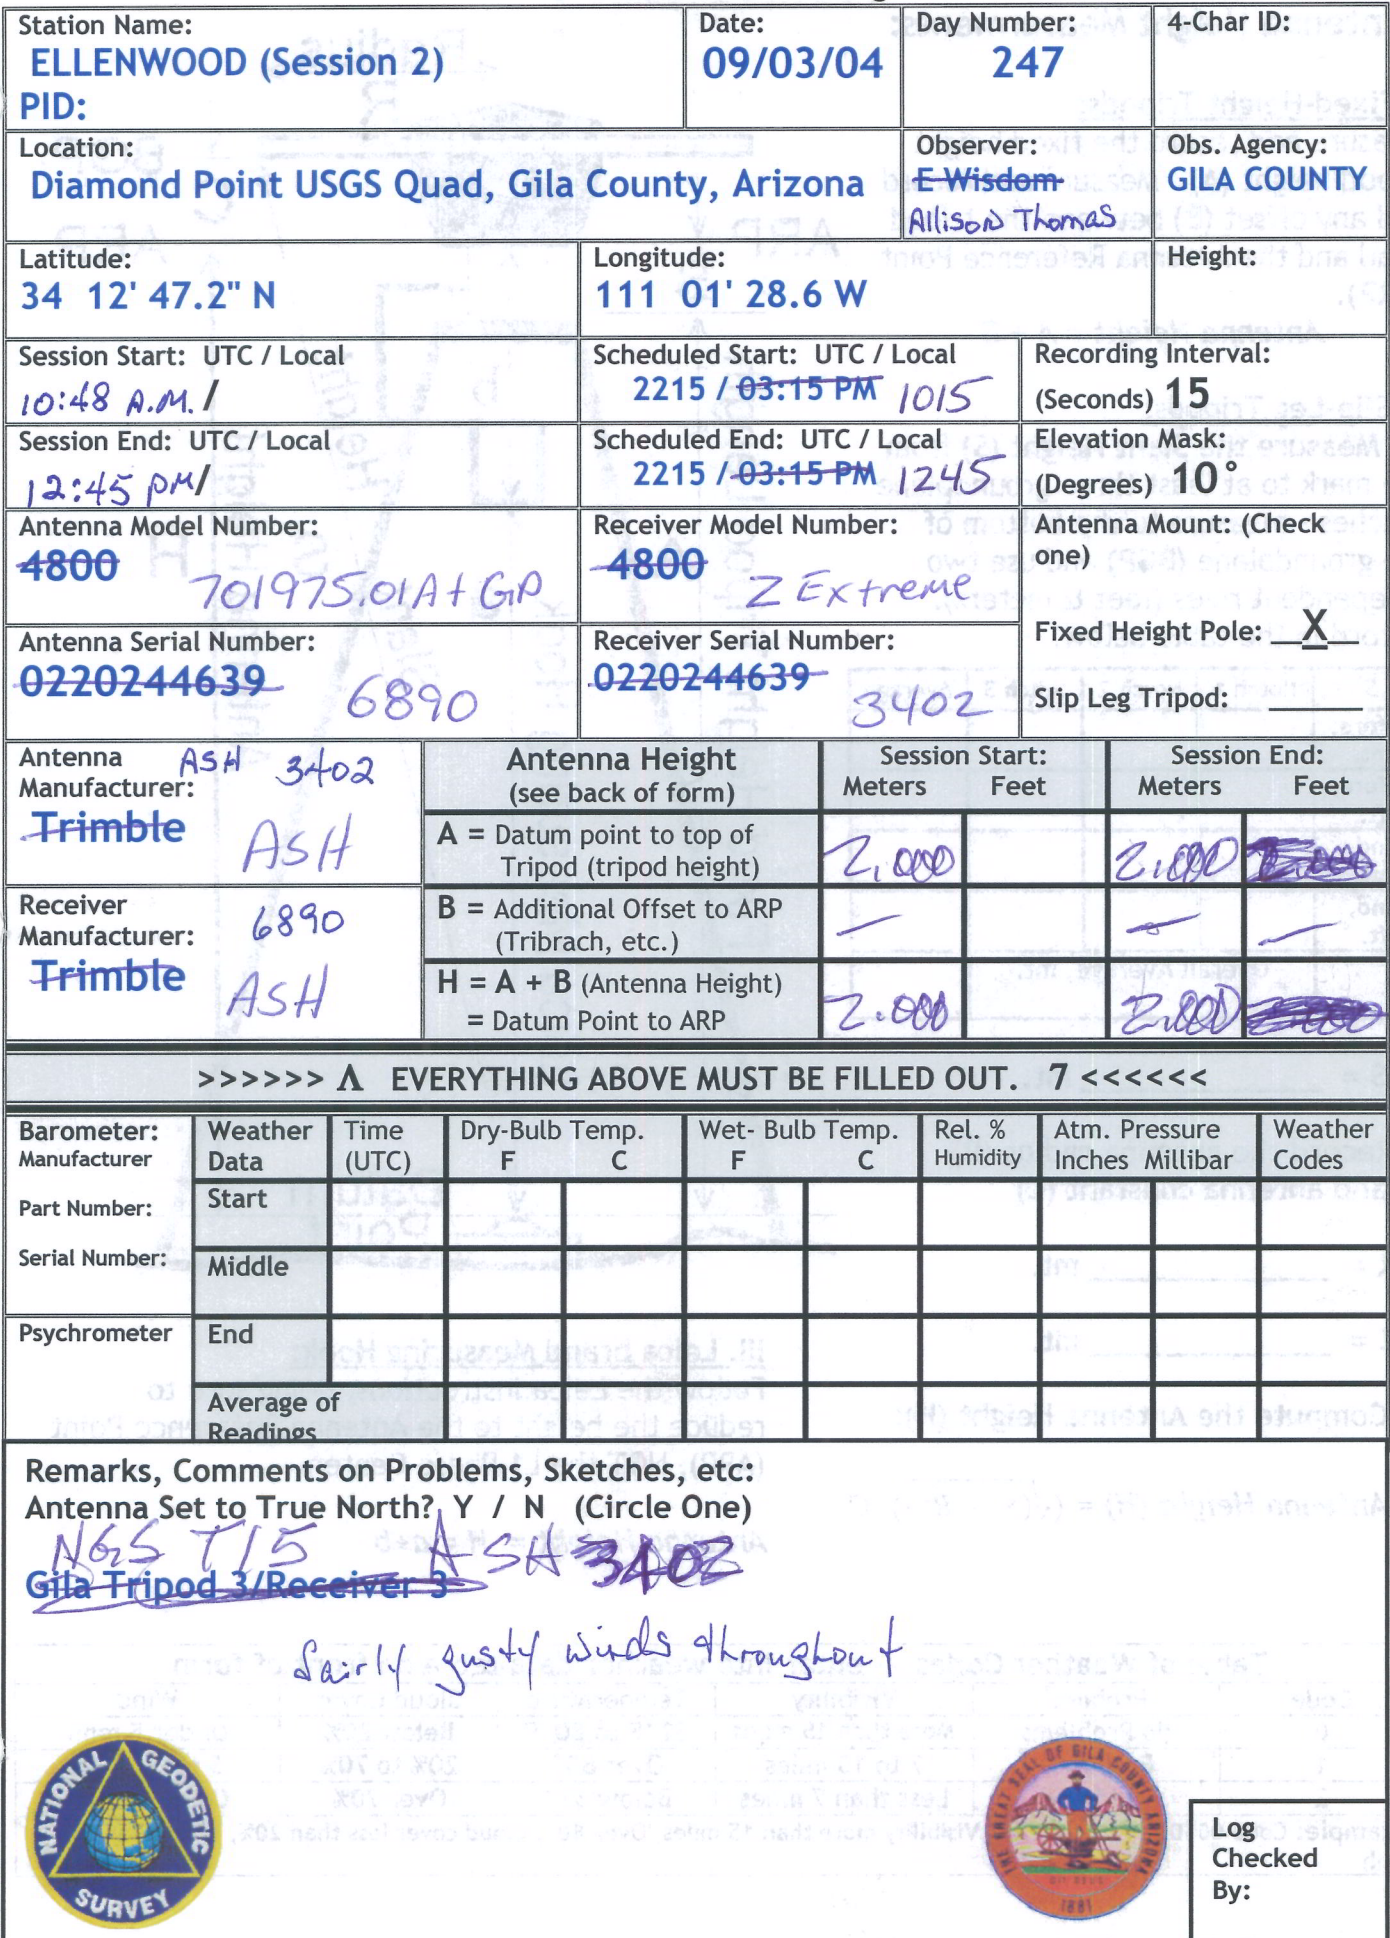 Station Name:
ELLENWOOD (Session 2)
PID:
Date:
09/03/04
Day Number:
247
4-Char ID:
Location:
Diamond Point USGS Quad, Gila County, Arizona
Observer:
E Wisdom
Allison Thomas
Obs. Agency:
GILA COUNTY
Latitude:
34 12' 47.2" N
Longitude:
111 01' 28.6 W
Height:
Session Start: UTC / Local
10:48 A.M. /
Scheduled Start: UTC / Local
2215 / 03:15 PM 1015
Recording Interval:
(Seconds) 15
Session End: UTC / Local
12:45 PM/
Scheduled End: UTC / Local
2215 / 03:15 PM 1245
Elevation Mask:
(Degrees) 10°
Antenna Model Number:
4800
701975.01A+GP
Receiver Model Number:
4800
Z Extreme
Antenna Mount: (Check
one)
Fixed Height Pole: X
Slip Leg Tripod:
Antenna Serial Number:
0220244639
6890
Receiver Serial Number:
0220244639
3402
Antenna ASH 3402
Manufacturer:
Trimble
ASH
Receiver 6890
Manufacturer:
Trimble
ASH
Antenna Height
(see back of form)
Session Start:
Meters Feet
Session End:
Meters Feet
A = Datum point to top of
Tripod (tripod height)
2.000 2.000
B = Additional Offset to ARP
(Tribrach, etc.)
— — —
H = A + B (Antenna Height)
= Datum Point to ARP
2.000 2.000
>>>>>> Λ EVERYTHING ABOVE MUST BE FILLED OUT. 7 <<<<<<
Barometer:
Manufacturer
Part Number:
Serial Number:
Psychrometer
Weather
Data
Time
(UTC)
Dry-Bulb Temp.
F C
Wet- Bulb Temp.
F C
Rel. %
Humidity
Atm. Pressure
Inches Millibar
Weather
Codes
Start
Middle
End
Average of
Readings
Remarks, Comments on Problems, Sketches, etc:
Antenna Set to True North? Y / N (Circle One)
NGS T15 ASH 3402
Gila Tripod 3/Receiver 3
fairly gusty winds throughout
NATIONAL GEODETIC SURVEY
THE GREAT SEAL OF GILA COUNTY ARIZONA
1881
Log
Checked
By: